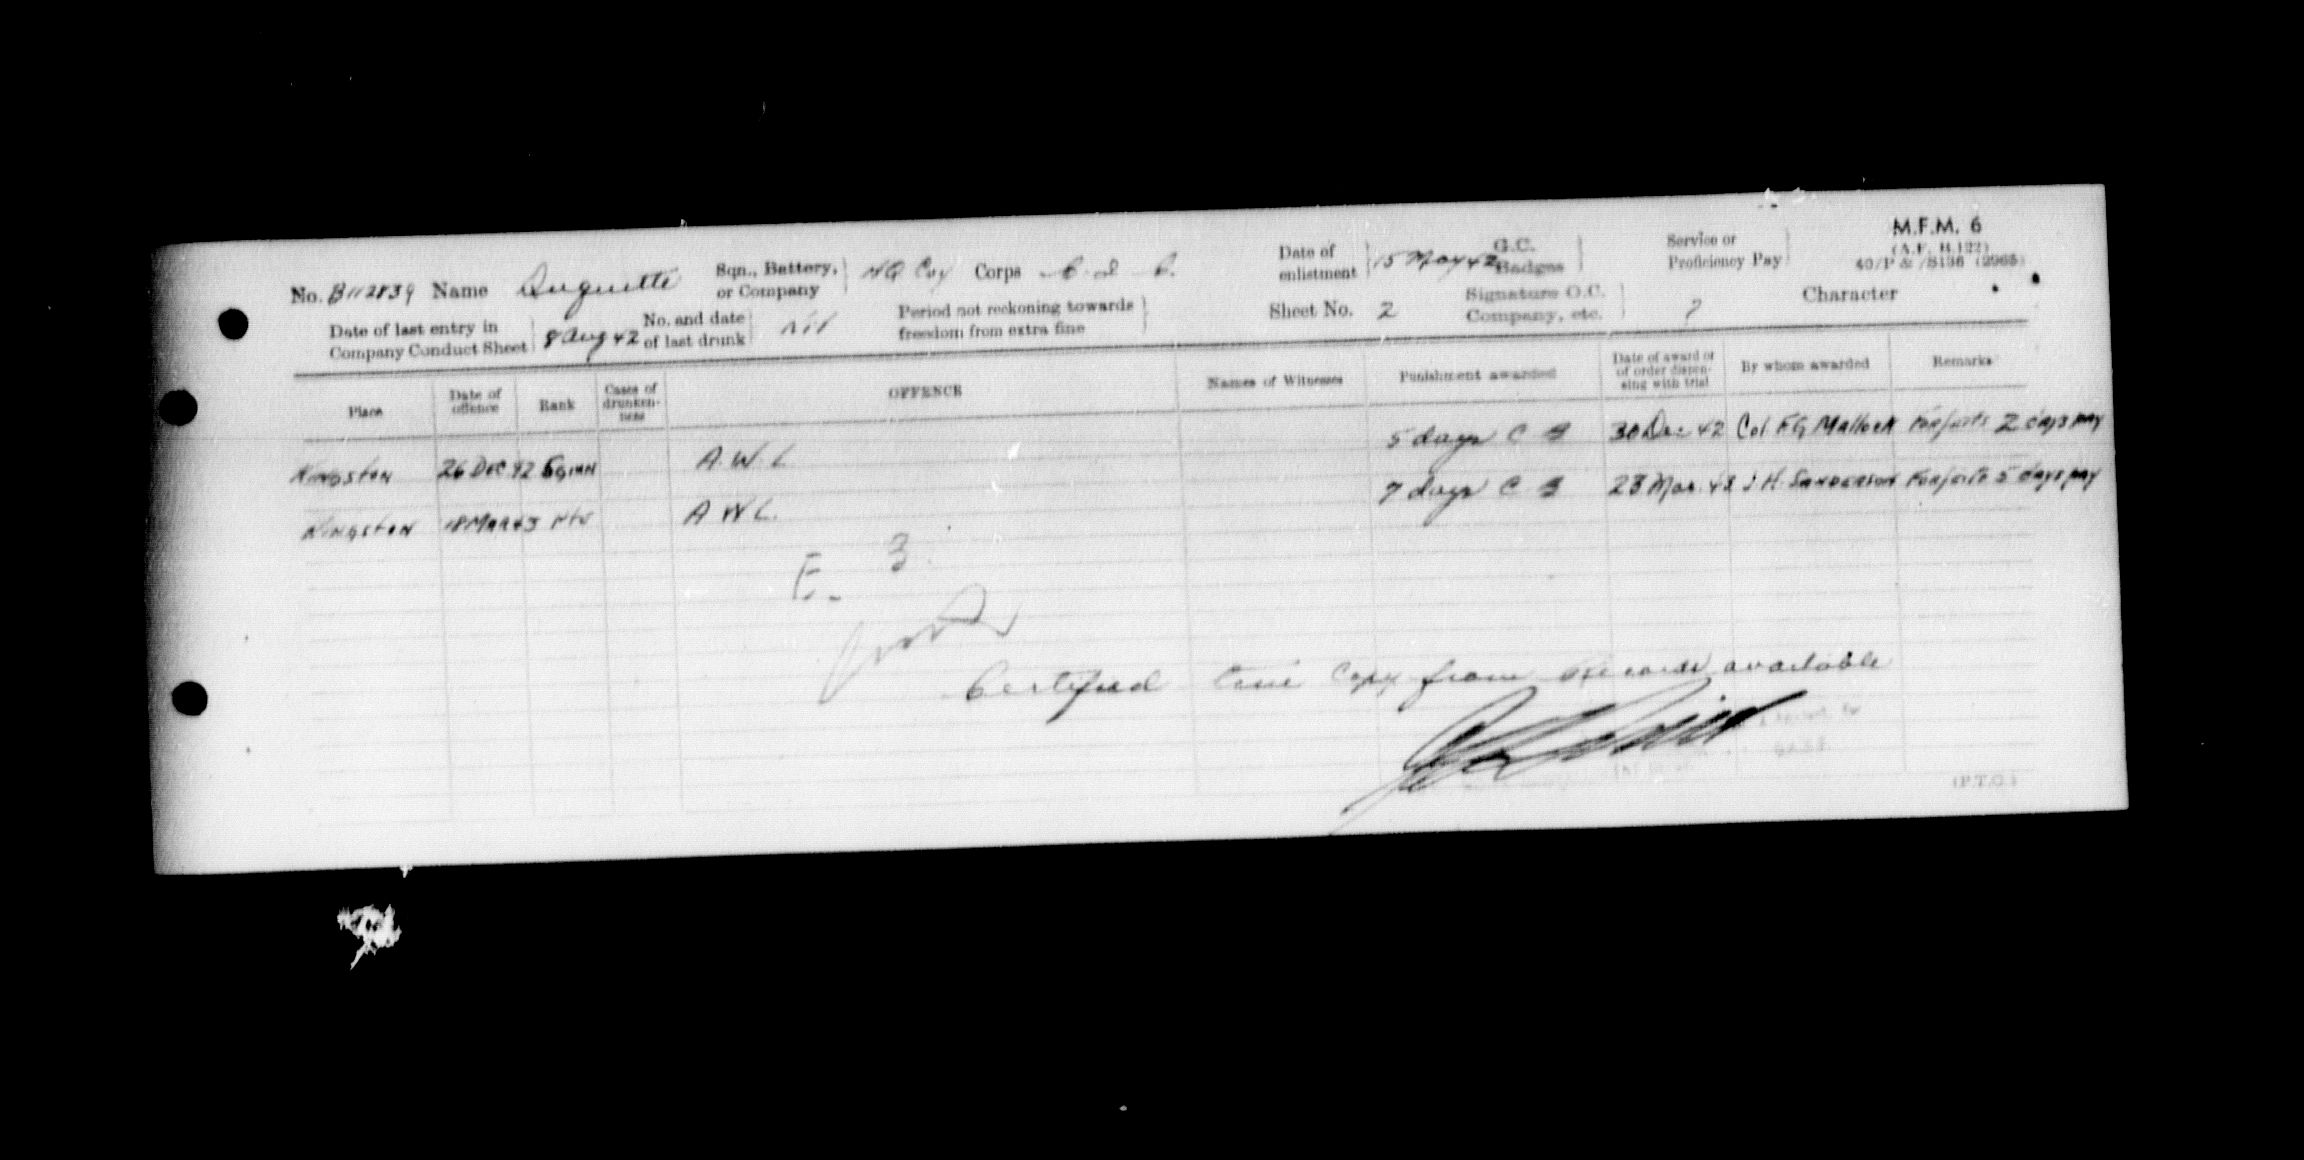 M.F.M. 6
(A.F. B.122)
No. B112839 Name Duquette Sqn., Battery, or Company HQ Coy Corps Date of enlistment 15 May 42 G.C. Badges Service or Proficiency Pay
Date of last entry in Company Conduct Sheet 8 Aug 42 No. and date of last drunk nil Period not reckoning towards freedom from extra fine Sheet No. 2 Signature O.C. Company, etc. ? Character
Place Date of offence Rank Cases of drunkenness OFFENCE Names of Witnesses Punishment awarded Date of award or of order dispensing with trial By whom awarded Remarks
Kingston 26 Dec 42 A.W.L 5 days C B 30 Dec 42 Col F.G Malloch Forfeits 2 days pay
Kingston 18 Mar 43 Pte A W L. 7 days C B 23 Mar. 43 J H. Sanderson Forfeits 5 days pay
E. 3.
Certified true copy from records available
(P.T.O.)